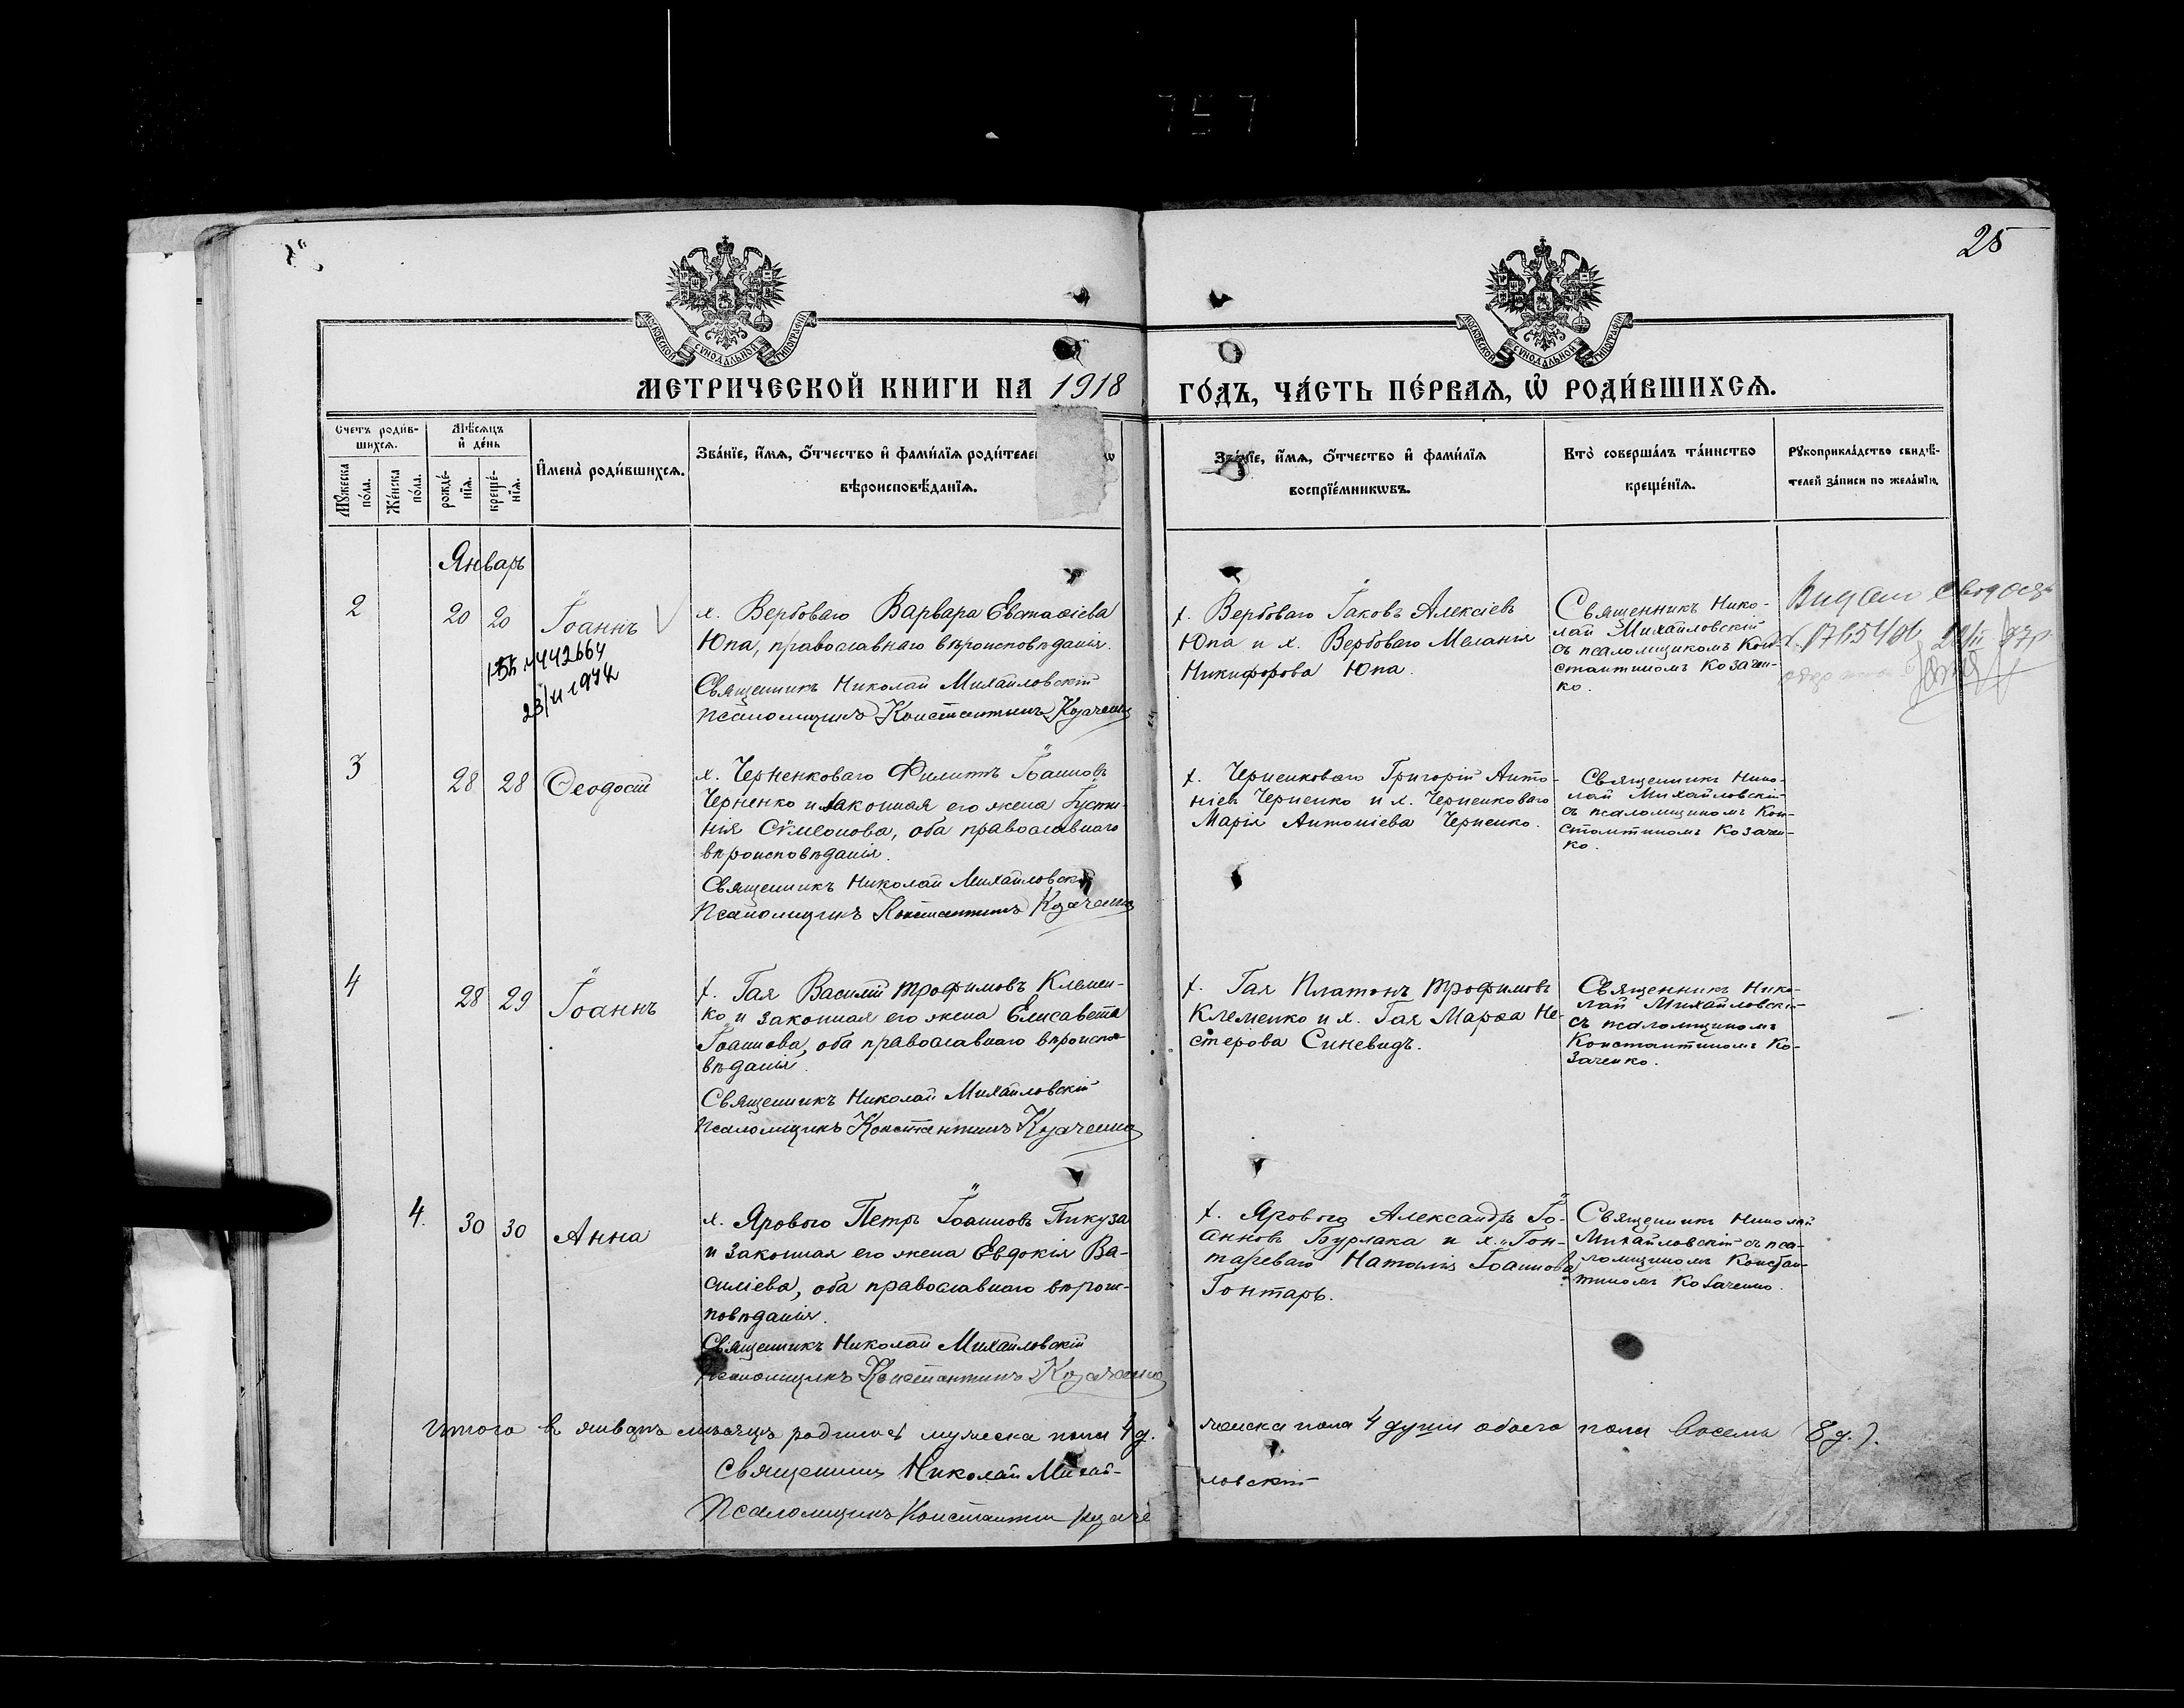 757
25
МОСКОВСКОЙ СУНОДАЛЬНОЙ ТИПОГРАФІИ
МОСКОВСКОЙ СУНОДАЛЬНОЙ ТИПОГРАФІИ
МЕТРИЧЕСКОЙ КНИГИ НА 1918
ГО́ДЪ, ЧА́СТЬ ПЕ́РВАѦ, Ѡ҆ РОДИ́ВШИХСѦ.
Счетъ роди́в-
шихсѧ.
Мꙋжеска по́ла.
Же́нска по́ла.
Мѣ́сѧцъ
и҆ де́нь
рожде́-
нїѧ.
креще́-
нїѧ.
И҆мена̀ роди́вшихсѧ.
Зва́нїе, и҆́мѧ, ѻ҆́тчество и҆ фами́лїѧ роди́телей
вѣроисповѣ́данїѧ.
Зва́нїе, и҆́мѧ, ѻ҆́тчество и҆ фами́лїѧ
воспрїе́мникѡвъ.
Кто̀ соверша́лъ та́инство
креще́нїѧ.
Рꙋкоприкла́дство свидѣ́-
телей за́писи по жела́нїю.
Январь
2
20 20
Іоаннъ
442664
х. Вербоваго Варвара Евстафіева
Юпа, православнаго вѣроисповѣданія.
Священникъ Николай Михайловскій
Псаломщикъ Константинъ Козаченко
х. Вербоваго Іаковъ Алексіевъ
Юпа и х. Вербоваго Меланія
Никифорова Юпа.
Священникъ Нико-
лай Михайловскій
съ псаломщикомъ Кон-
стантиномъ Козачен-
ко.
3
28 28 Ѳеодосій
х. Черненковаго Филиппъ Іоанновъ
Черненко и законная его жена Іусти-
нія Сѵмеонова, оба православнаго
вѣроисповѣданія.
Священникъ Николай Михайловскій
Псаломщикъ Константинъ Козаченко
х. Черненковаго Григорій Анто-
ніевъ Черненко и х. Черненковаго
Марія Антоніева Черненко.
Священникъ Нико-
лай Михайловскій
съ псаломщикомъ Кон-
стантиномъ Козачен-
ко.
4
28 29 Іоаннъ
х. Гая Василій Трофимовъ Клемен-
ко и законная его жена Елисавета
Іоаннова, оба православнаго вѣроиспо-
вѣданія.
Священникъ Николай Михайловскій
Псаломщикъ Константинъ Козаченко
х. Гая Платонъ Трофимовъ
Клеменко и х. Гая Марѳа Не-
стерова Синевидъ.
Священникъ Нико-
лай Михайловскій
съ псаломщикомъ
Константиномъ Ко-
заченко.
4.
30 30 Анна
х. Ярового Петръ Іоанновъ Пикуза
и законная его жена Евдокія Ва-
силіева, оба православнаго вѣроис-
повѣданія.
Священникъ Николай Михайловскій
Псаломщикъ Константинъ Козаченко
х. Ярового Александръ Іо-
анновъ Бурлака и х. Гон-
тареваго Наталія Іоаннова
Гонтарь.
Священникъ Николай
Михайловскій съ пса-
ломщикомъ Констан-
тиномъ Козаченко.
Итого въ январѣ мѣсяцѣ родилось мужеска пола 4 д.
женска пола 4 души обоего пола восемь (8 д.).
Священникъ Николай Михай-
ловскій
Псаломщикъ Константинъ Козаче